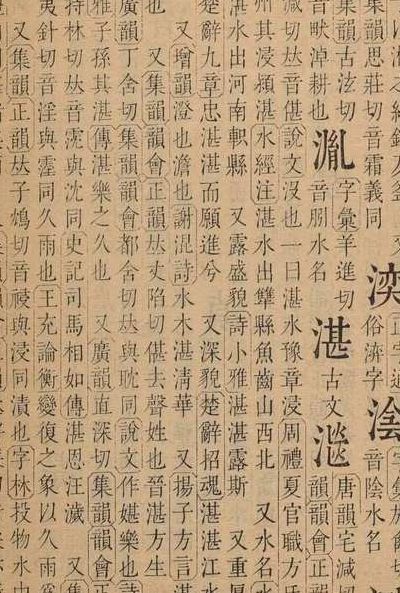 集韻思莊切音霜義同 正字通俗濟字 音陰水名
集韻古泫切音畎淖耕也 字彙羊進切音胤水名 湛 古文 唐韻宅減切集韻韻會正韻
減切𠀤音偡說文沒也一曰湛水豫章浸周禮夏官職方氏
州其浸潁湛水經注湛水出犨縣魚齒山西北 又水名水
湛水出河南軹縣 又露盛貌詩小雅湛湛露斯 又重厚
楚辭九章忠湛湛而願進兮 又深貌楚辭招魂湛湛江水
又增韻澄也澹也謝混詩水木湛淸華 又揚子方言湛
也 又集韻韻會正韻𠀤丈陷切偡去聲姓也晉湛方生
廣韻丁含切集韻韻會都含切𠀤與耽同說文作媅樂也詩
雅子孫其湛傳湛樂之久也 又廣韻直深切集韻韻會正
持林切𠀤音霃與沈同史記司馬相如傳湛恩汪濊 又集
夷針切音淫與霪同久雨也王充論衡變復之象以久雨爲
又集韻正韻𠀤子鴆切音祲與浸同漬也字林投物水中